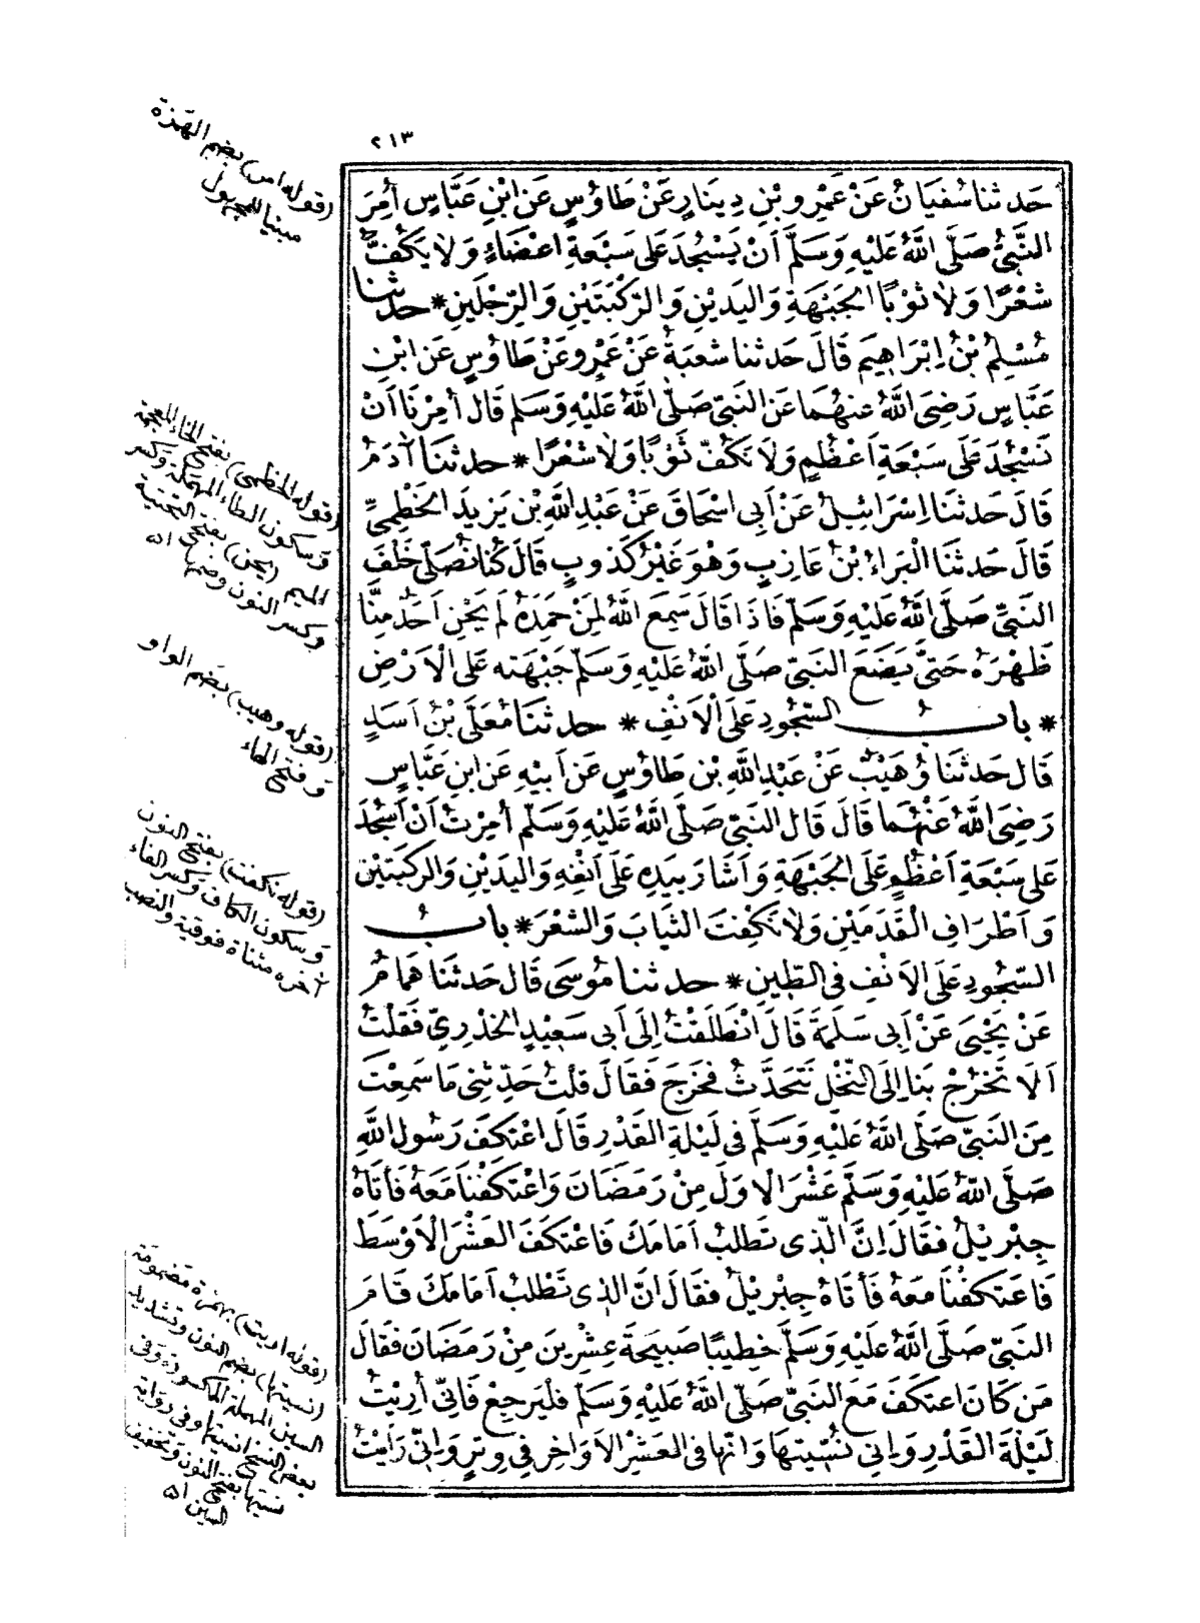 ٢١٣
حَدثنا سُفيَانُ عَنْ عَمْرِو بْنِ دِينَارٍ عَنْ طَاوُسٍ عَنِ ابْنِ عَبَّاسٍ أُمِرَ
النَّبِيُّ صَلَّى اللَّهُ عَلَيْهِ وَسَلَّمَ أَنْ يَسْجُدَ عَلَى سَبْعَةِ اَعْضَاءٍ وَلَا يَكُفَّ
شَعْرًا وَلَا ثَوْبًا الجَبْهَةِ وَاليَدَيْنِ وَالرُّكْبَتَيْنِ وَالرِّجْلَينِ * حدثنا
مُسْلِمُ بْنُ اِبْرَاهِيمَ قَالَ حَدثنا شعبَةُ عَنْ عَمْرٍو عَنْ طَاوُسٍ عَنِ ابْنِ
عَبَّاسٍ رَضِيَ اللَّهُ عنهُمَا عَنِ النَّبِيّ صَلَّى اللَّهُ عَلَيْهِ وَسَلم قَالَ أُمِرْنَا اَنْ
نَسْجُدَ عَلَى سَبْعَةِ اَعْظُمٍ وَلَا نَكُفّ ثَوْبًا وَلَا شَعْرًا * حدثنَا آدَمُ
قَالَ حَدثنَا اِسْرَائِيلُ عَنْ أَبِي اسْحَاقَ عَنْ عَبْدِ اللَّهِ بْنِ يَزِيدَ الخَطْمِيِّ
قَالَ حَدثنَا الْبَرَاءُ بْنُ عَازِبٍ وَهْوَ غَيْرُ كَذوبٍ قَالَ كُنَا نُصَلّى خَلْفَ
النَّبِيّ صَلَّى اللَّهُ عَلَيْهِ وَسَلَّم فَاِذَا قَالَ سَمِعَ اللَّهُ لِمَنْ حَمِدَهُ لَمْ يَحْنِ اَحَدٌ مِنَّا
ظَهْرَهُ حَتَّى يَضَعَ النَبِيّ صَلَّى اللَّهُ عَلَيْهِ وَسَلَّم جَبْهَته عَلَى الْاَرْضِ
* بابُ السّجُودِ عَلَى الْاَنْفِ * حدثنَا مُعَلَّى بْنُ اَسَدٍ
قَال حَدثنَا وُهَيْبٌ عَنْ عَبْدِ اللَّهِ بْنِ طَاوُسٍ عَن اَبِيْهِ عَنِ ابنِ عَبَّاسٍ
رَضِيَ اللَّهُ عَنْهُمَا قَالَ قَالَ النَّبِيّ صَلَّى اللَّهُ عَلَيْهِ وَسَلَّم أُمِرْتُ اَنْ اَسْجُدَ
عَلى سَبْعَةِ اَعْظُمٍ عَلَى الجَبْهَةِ وَاَشَارَ بِيَدِهِ عَلَى اَنْفِهِ وَاليَدَيْنِ وَالرُكبَتَيْنِ
وَاَطْرَافِ الْقَدَمَيْنِ وَلَا نَكْفِتَ الثِيَابَ وَالشَّعْرَ * بابُ
السّجُودِ عَلَى الاَنْفِ فِى الطِينِ * حدثنا مُوسَى قَال حَدثنَا هَمامٌ
عَنْ يَحْيَى عَنْ اَبِى سَلَمَةَ قَالَ انْطَلَقْتُ إِلَى أَبِى سَعِيدٍ الخُدْرِيِّ فَقُلْتُ
اَلَا تَخْرُجُ بنا اِلَى النَّخْلِ نَتَحَدَّثُ فَخَرَجَ فَقَالَ قُلْتُ حَدِّثنِى مَا سَمِعْتَ
مِنَ النَبِيّ صَلَّى اللَّهُ عَلَيْهِ وَسَلَّم فِى لَيْلَةِ القَدْرِ قَالَ اعْتَكَفَ رَسُولُ اللَّهِ
صَلَّى اللَّهُ عَلَيْهِ وَسَلَّمَ عَشْرَ الاَوَلَ مِنْ رَمَضَانَ وَاعْتَكَفْنَا مَعَهُ فَأَتَاهُ
جِبْرِيلُ فقَالَ اِنَّ الَّذِى تَطلبُ اَمَامَكَ فَاعْتَكَفَ العَشْرَ الْاَوْسَطَ
فَاعتَكَفْنَا مَعَهُ فَأتَاهُ جِبْرِيلُ فقَالَ انَّ الذِى تَطْلبُ اَمَامَكَ قَامَ
النَبِيّ صَلَّى اللَّهُ عَلَيْهِ وَسَلَّمَ خَطِيبًا صَبِيحَةَ عِشْرِينَ مِنْ رَمَضَانَ فَقَالَ
مَن كَانَ اعتكَفَ مَعَ النَبِيّ صَلّى اللَّهُ عَلَيْهِ وَسَلّمَ فليَرجِعْ فَاِنِّى أُرِيْتُ
لَيْلَةَ القَدْرِ وَاِنِّى نُسِّيتهَا وَانّها فى العَشْرِ الاَوَاخِرِ فِي وِتْرٍ وَاِنِّى رَأيْتُ
(قوله امر) بضم الهمزة
مبنيا للمجهول
(قوله الخطمى) بفتح الخاء المعجمة
وسكون الطاء المهملة وكسر
الميم (يحن) بفتح التحتية
وكسر النون وضمها اه
(قوله وهيب) بضم الواو
وفتح الهاء
(قوله نكفت) بفتح النون
وسكون الكاف وكسر الفاء
آخره مثناة فوقية والنصب
(قوله اريت) بهمزة مضمومة
(نسيتها) بضم النون وتشديد
السين المهملة المكسورة وفى
بعض النسخ انسيتها وفى رواية
نسيتها بفتح النون وتخفيف
السين اه